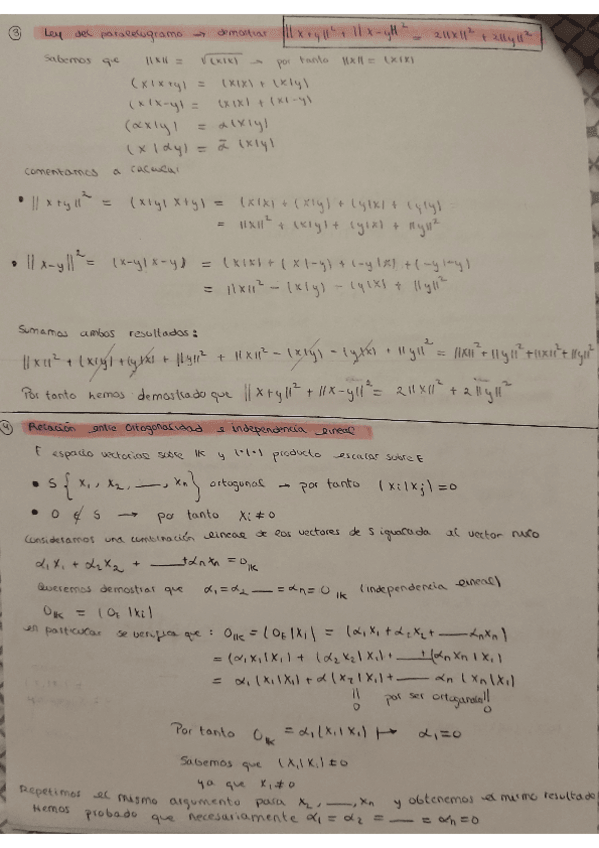 ③ Ley del paralelogramo → demostrar ||x+y||² + ||x-y||² = 2||x||² + 2||y||²
Sabemos que ||x|| = √(x|x) → por tanto ||x|| = (x|x)
(x|x+y) = (x|x) + (x|y)
(x|x-y) = (x|x) + (x|-y)
(αx|y) = α(x|y)
(x|αy) = ᾱ(x|y)
comentamos a calcular
• ||x+y||² = (x+y|x+y) = (x|x) + (x|y) + (y|x) + (y|y)
= ||x||² + (x|y) + (y|x) + ||y||²
• ||x-y||² = (x-y|x-y) = (x|x) + (x|-y) + (-y|x) + (-y|-y)
= ||x||² - (x|y) - (y|x) + ||y||²
Sumamos ambos resultados:
||x||² + (x|y) + (y|x) + ||y||² + ||x||² - (x|y) - (y|x) + ||y||² = ||x||² + ||y||² + ||x||² + ||y||²
Por tanto hemos demostrado que ||x+y||² + ||x-y||² = 2||x||² + 2||y||²
④ Relación entre ortogonalidad e independencia lineal
E espacio vectorial sobre IK y (·|·) producto escalar sobre E
• S { x₁, x₂, __, xₙ } ortogonal → por tanto (xi|xj) = 0
• 0 ∉ S → por tanto xi ≠ 0
Consideramos una combinación lineal de los vectores de S igualada al vector nulo
α₁x₁ + α₂x₂ + __ + αₙxₙ = 0IK
Queremos demostrar que α₁ = α₂ __ = αₙ = 0IK (independencia lineal)
0IK = (0E|xi)
en particular se verifica que: 0IK = (0E|x₁) = (α₁x₁ + α₂x₂ + __ αₙxₙ)
= (α₁x₁|x₁) + (α₂x₂|x₁) + __ + (αₙxₙ|x₁)
= α₁(x₁|x₁) + α(x₂|x₁) + __ αₙ(xₙ|x₁)
|| por ser ortogonal ||
0 0
Por tanto 0IK = α₁(x₁|x₁) ↦ α₁ = 0
Sabemos que (x₁|x₁) ≠ 0
ya que x₁ ≠ 0
Repetimos el mismo argumento para x₂, __, xₙ y obtenemos el mismo resultado
Hemos probado que necesariamente α₁ = α₂ = __ = αₙ = 0